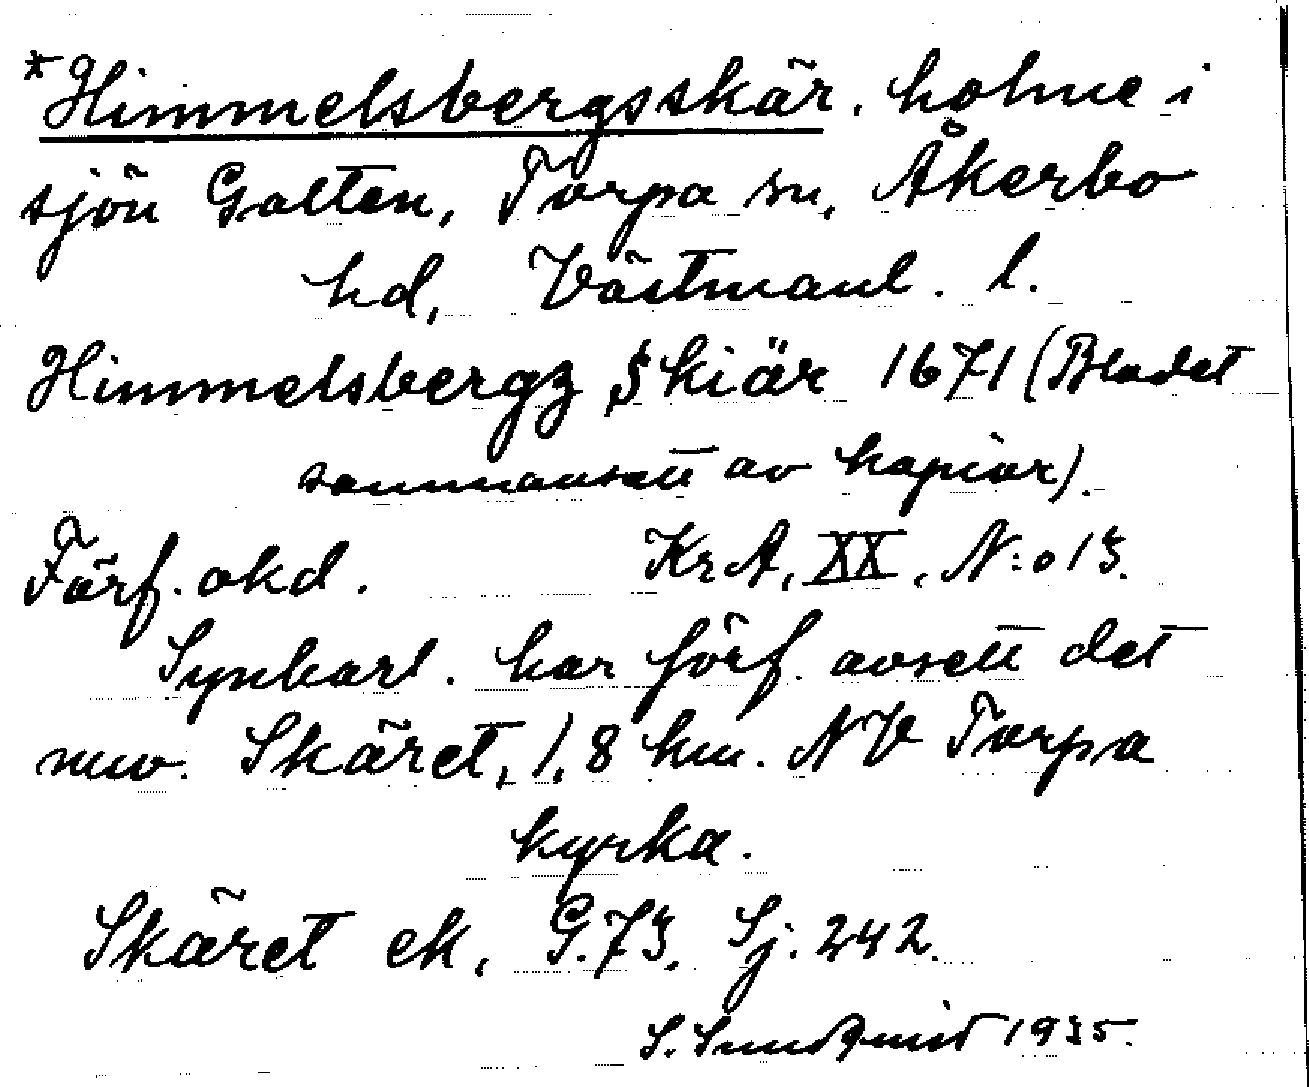 *Himmelsbergsskär, holme i
sjön Galten, Torpa sn, Åkerbo
hd, Västmanl. l.
Himmelsbergz Skiär 1671 (Bladet
sammansatt av kopior)
Förf. okd. KrA, XX, N:o 13.
Synbarl. har förf. avsett det
nuv. Skäret, 1,8 km. NV Torpa
kyrka.
Skäret ek, G.73, Sj. 242.
S. Sundqvist 1935.